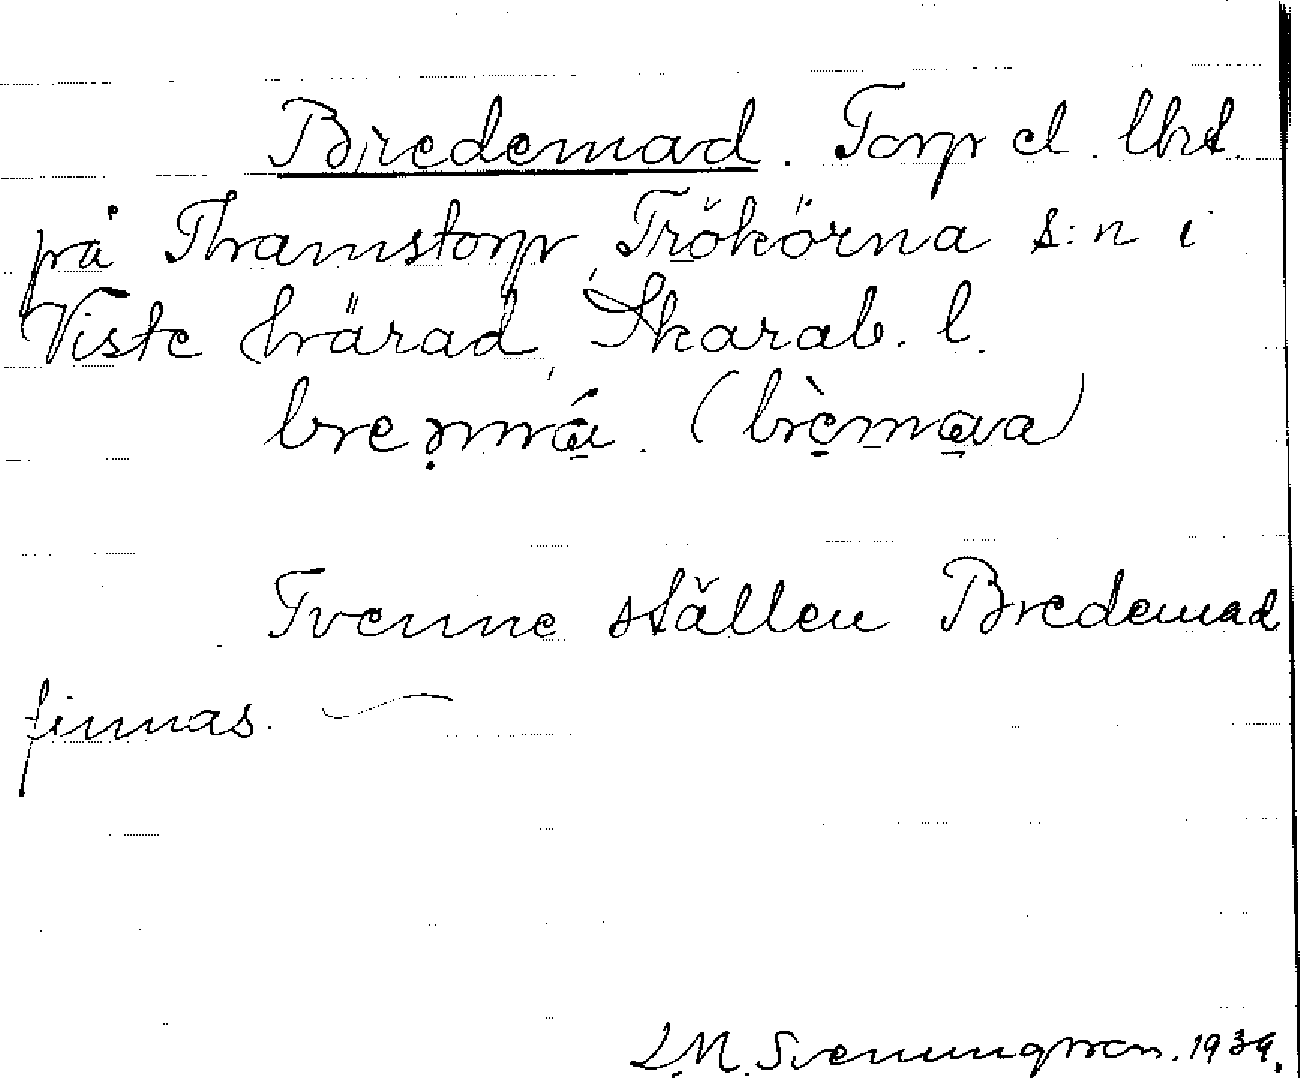 Bredemad. Torp el. lht.
på Thamstorp, Trökörna s:n i
Viste härad, Skarab. l.
(brèmava)
Tvenne ställen Bredemad
finnas.
L.M. Svenungsson. 1939.